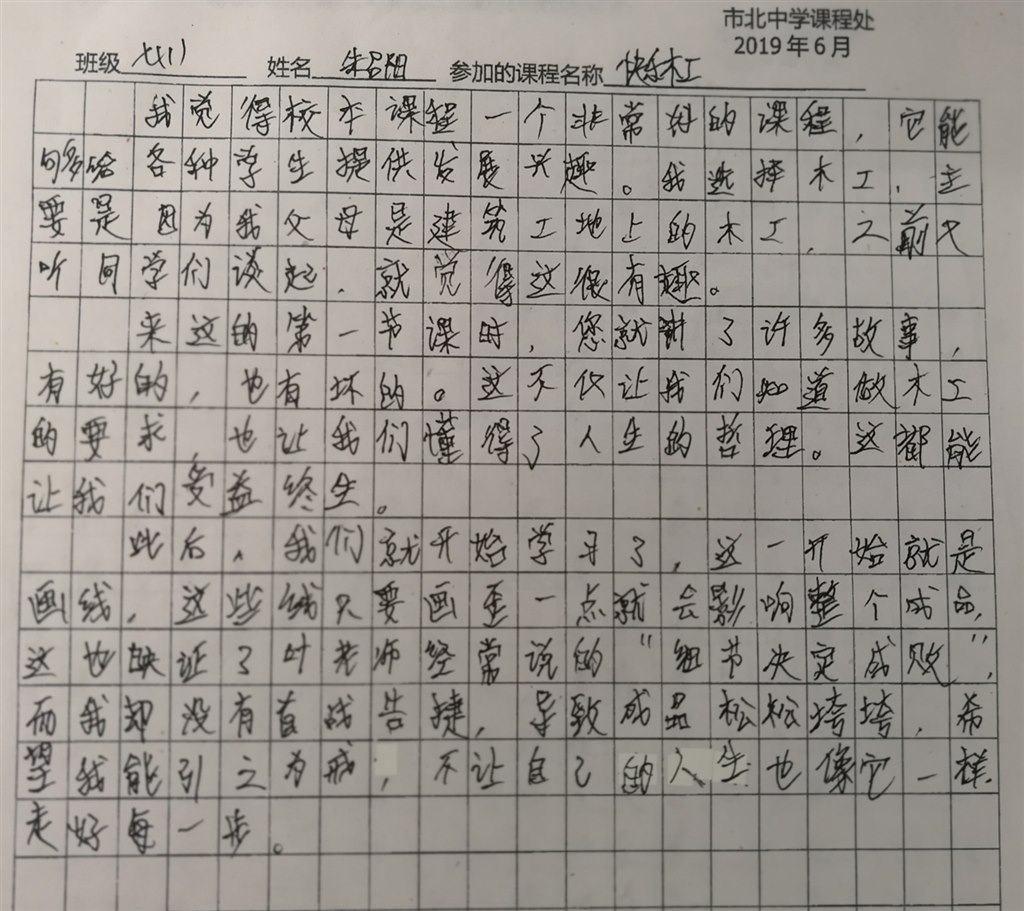 市北中学课程处
2019年6月
班级 七11 姓名 朱吕阳 参加的课程名称 快乐木工
我觉得校本课程一个非常好的课程，它能
够给各种学生提供发展兴趣。我选择木工，主
要是因为我父母是建筑工地上的木工，之前又
听同学们谈起，就觉得这很有趣。
来这的第一节课时，您就讲了许多故事，
有好的，也有坏的。这不仅让我们知道做木工
的要求 也让我们懂得了人生的哲理。这都能
让我们受益终生。
此后，我们就开始学习了，这一开始就是
画线，这些线只要画歪一点就会影响整个成品，
这也映证了叶老师经常说的“细节决定成败”，
而我却没有首战告捷，导致成品松松垮垮，希
望我能引之为戒，不让自己的人生也像它一样
走好每一步。